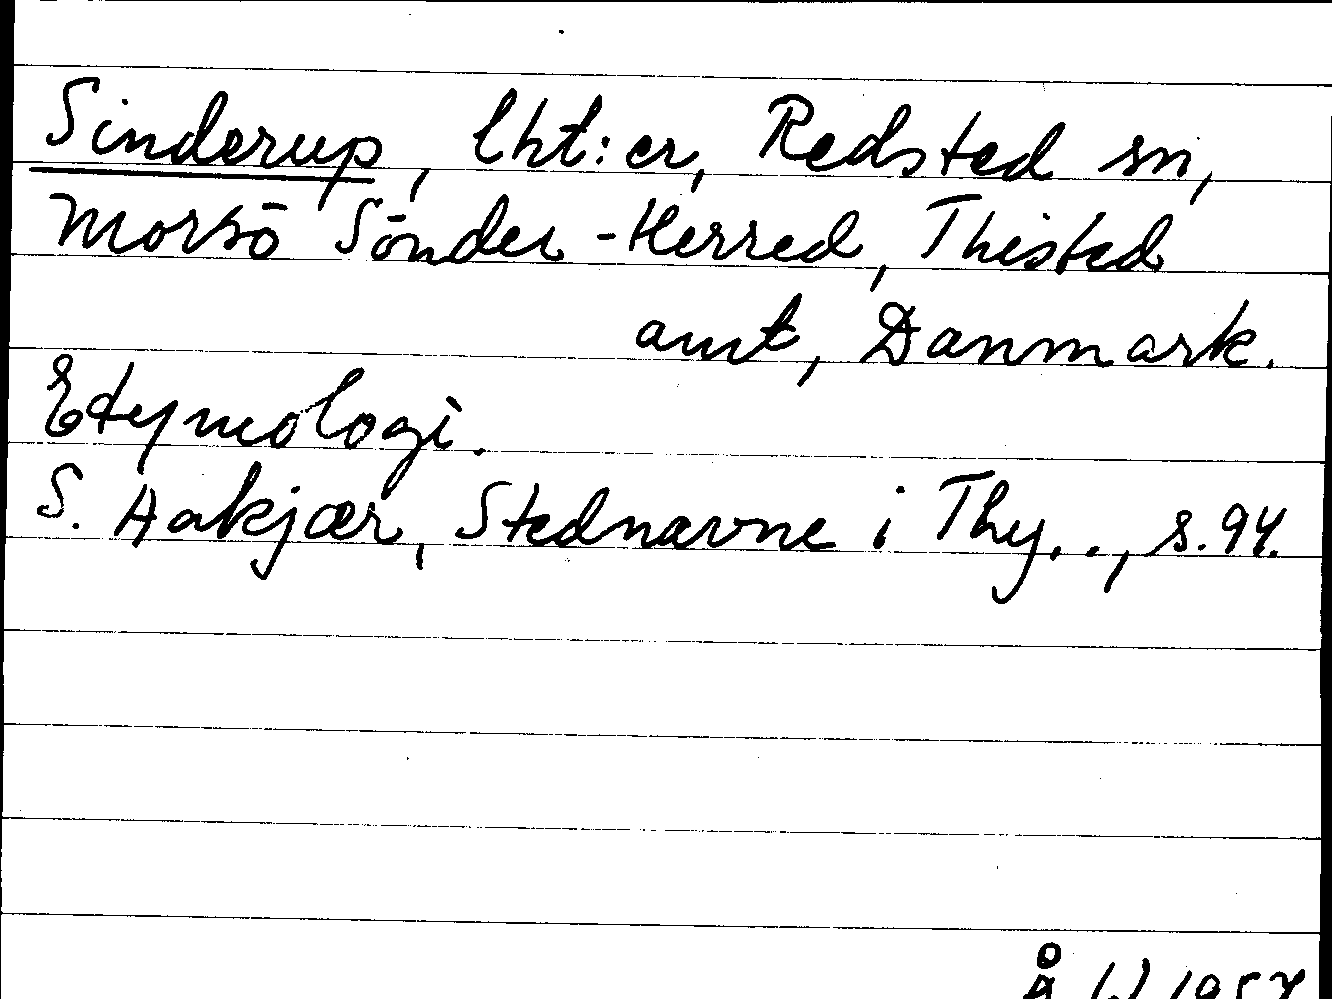 Sinderup, lht:er, Redsted sn,
Morsö Sönder-Herred, Thisted
amt, Danmark.
Etymologi.
S. Aakjær, Stednavne i Thy.., s. 94.
Å